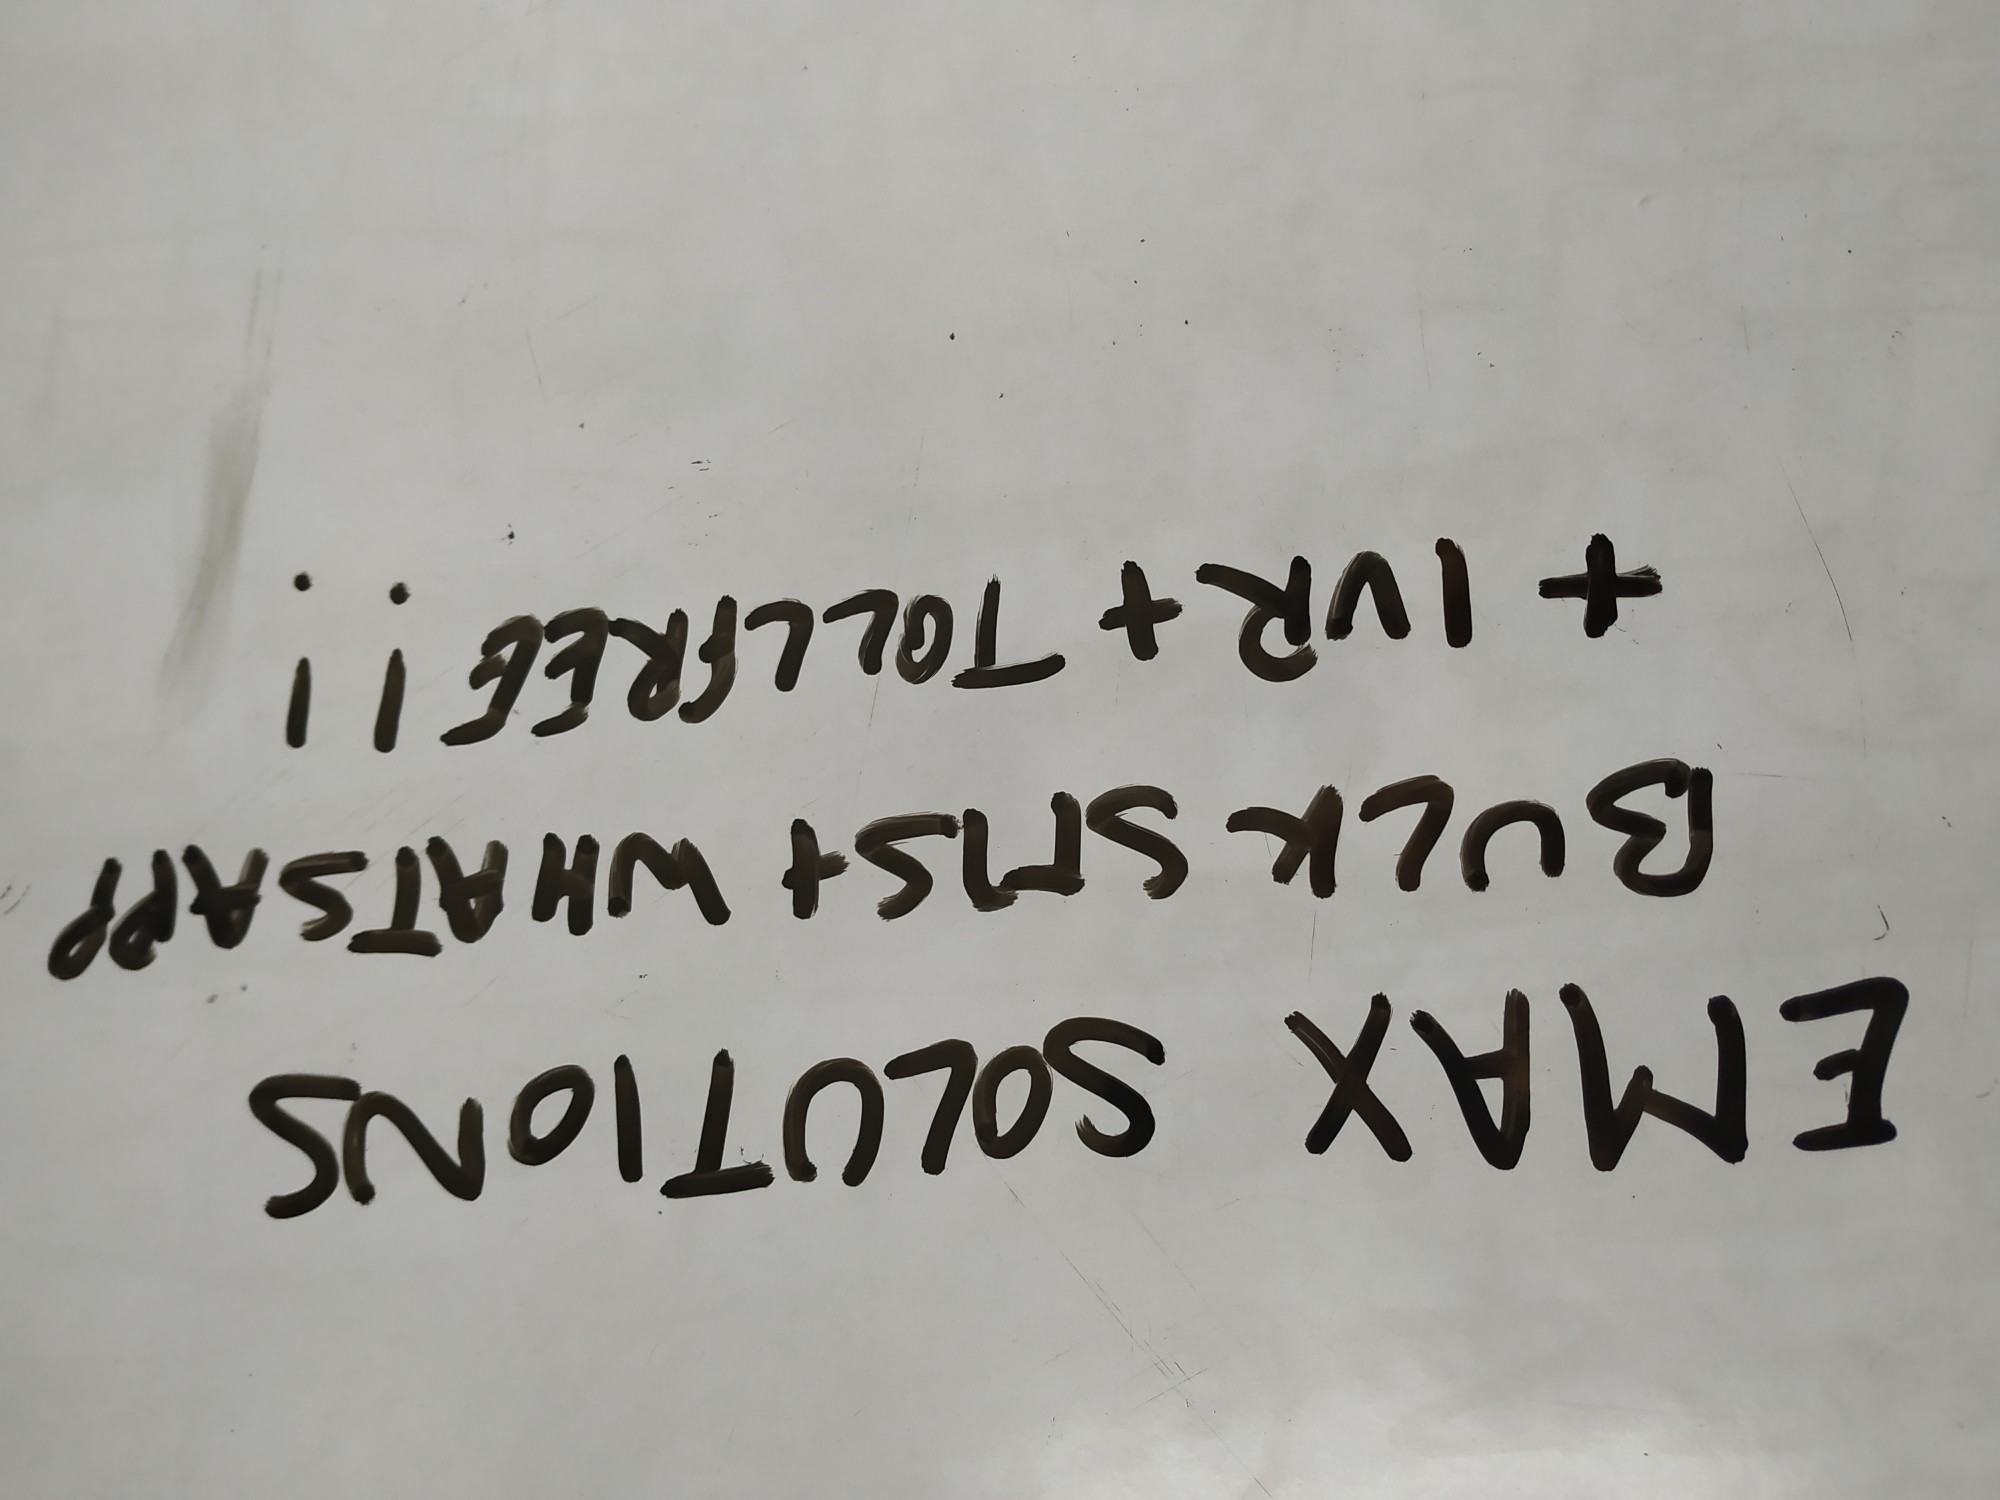 EMAX SOLUTIONS
BULK SMS+ WHATSAPP
+ IVR + TOLLFREE !!